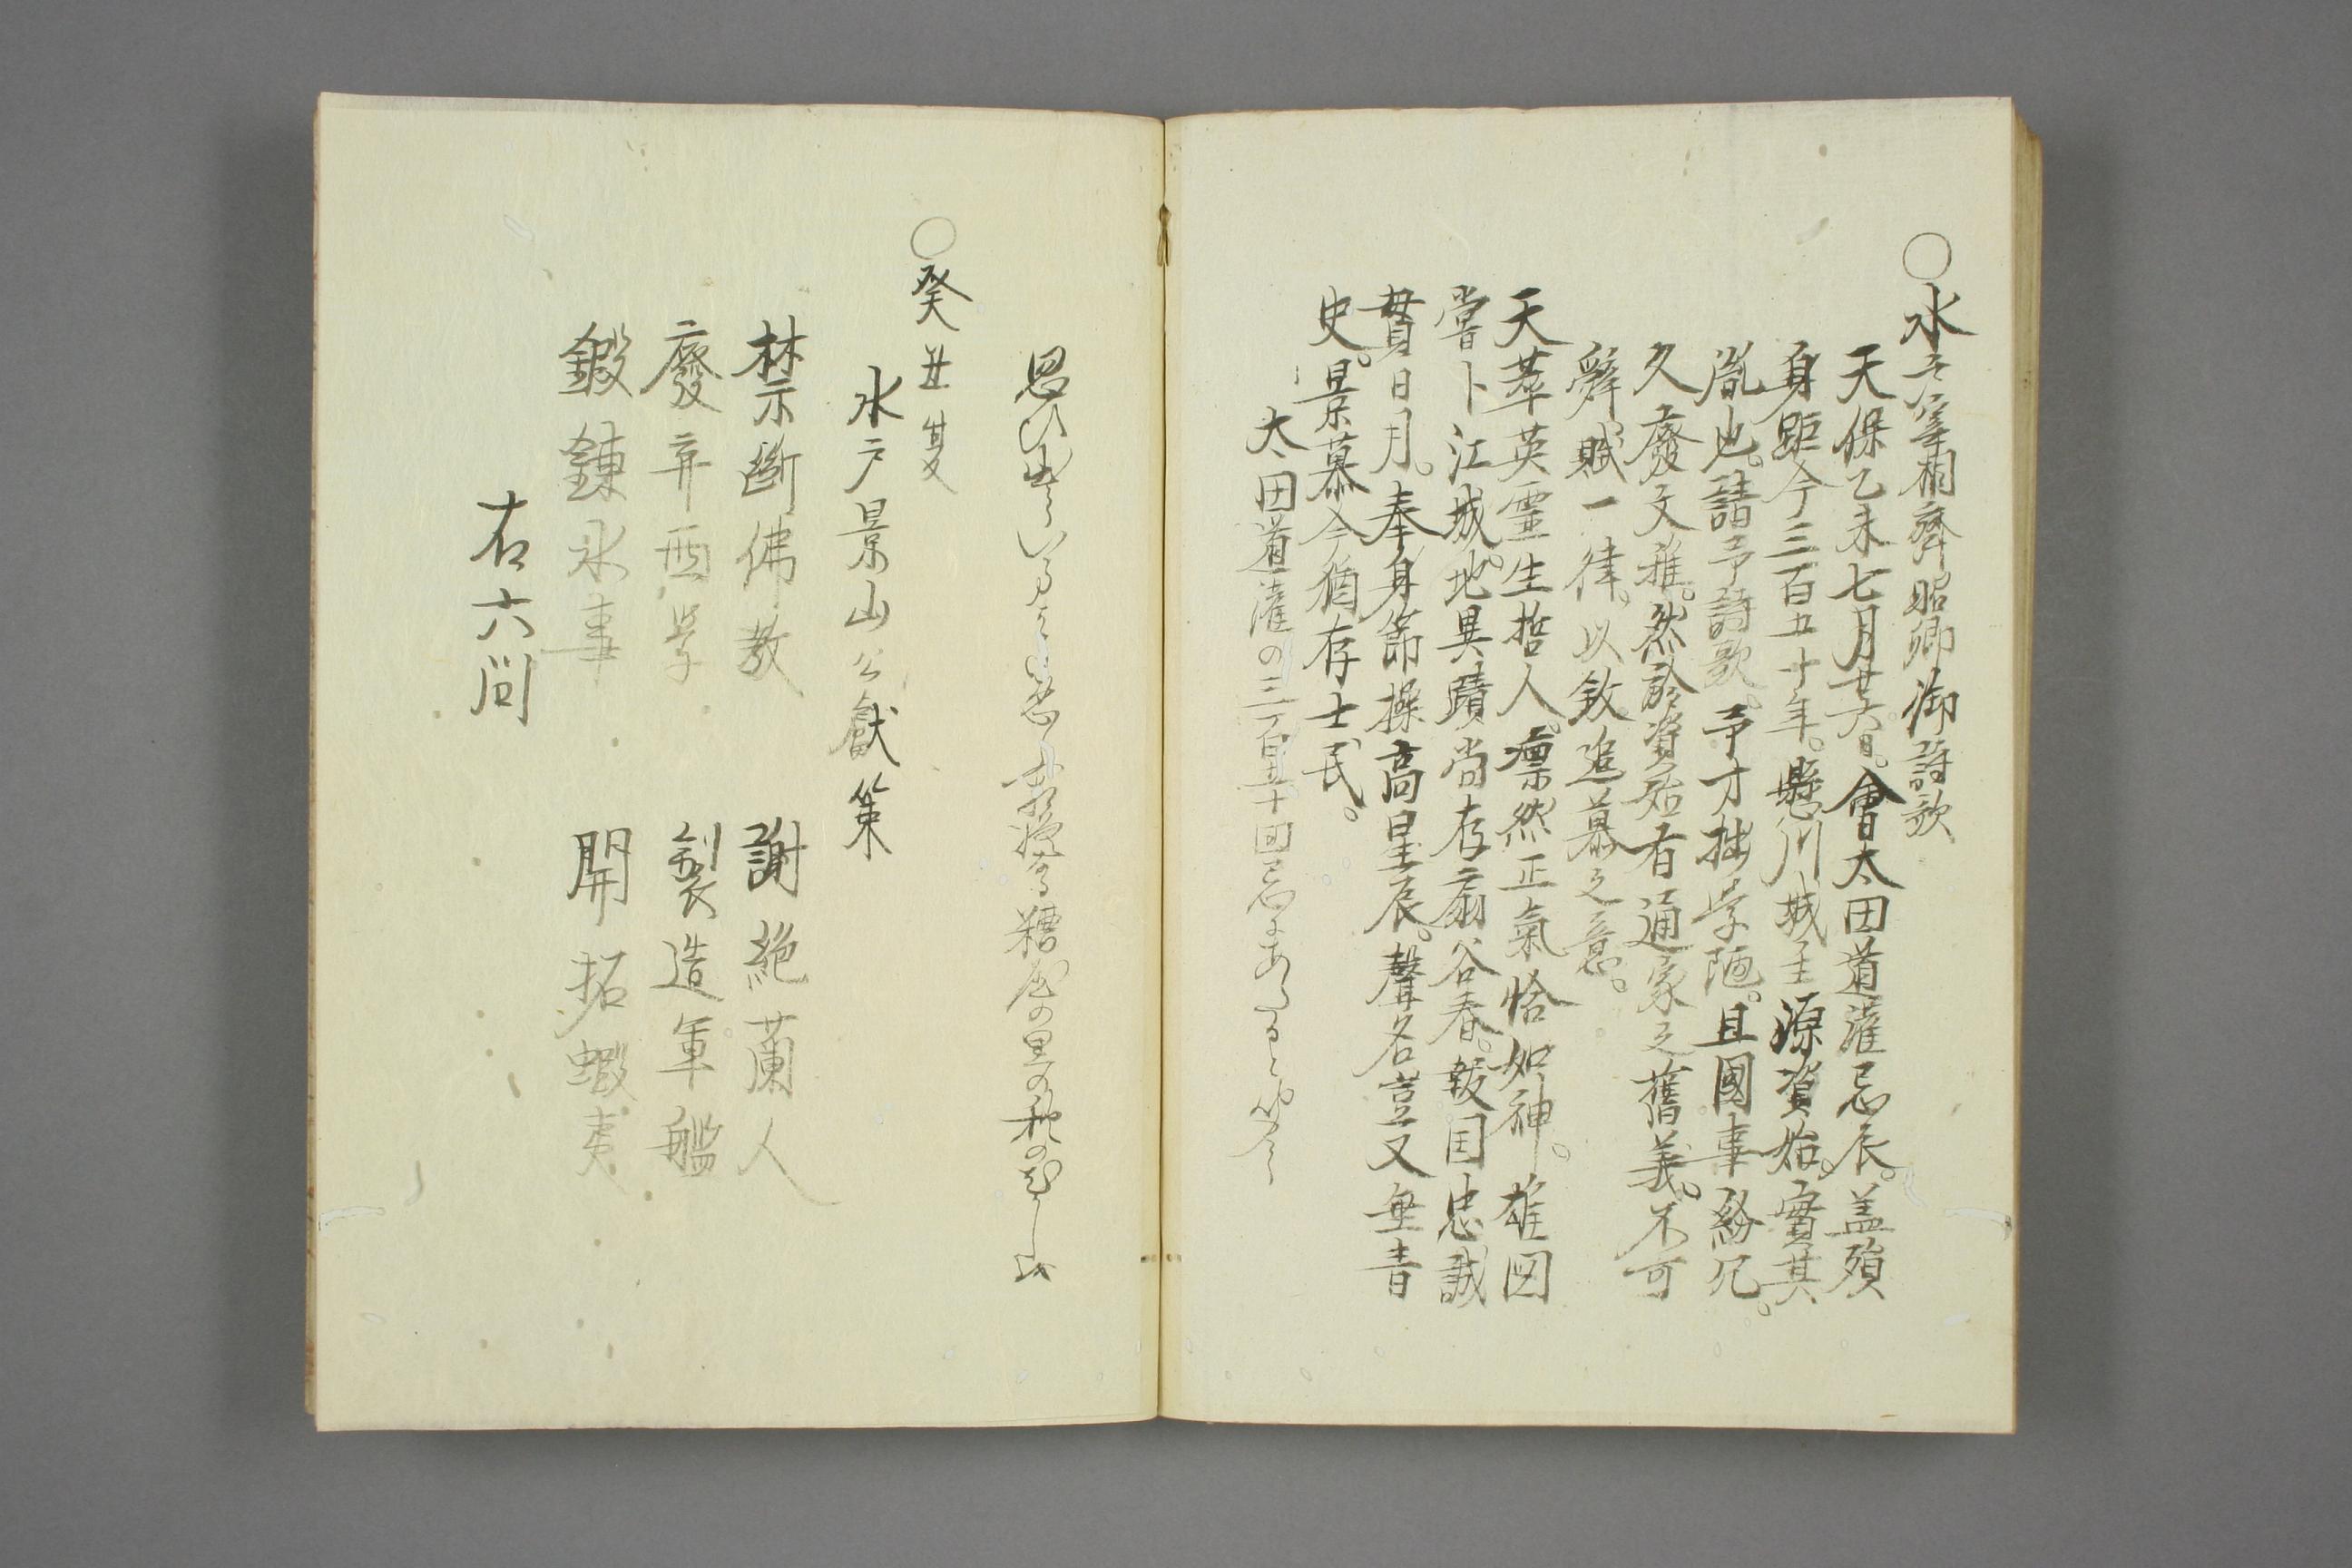 ○水戸宰相齊昭卿御詩歌
天保乙未七月廿六日。會太田道灌忌辰。盖殞
身距今三百五十年。懸川城主源資始。實其
胤也。請予詩歌。予才拙学陋。且國事紛冗。
久廢文雅。然於資始有通家之舊義。不可
辞。賦一律。以敘追慕之意。
天萃英霊生哲人。凛然正氣恰如神。雄図
嘗卜江城。地異蹟尚存扇谷春。報国忠誠
貫日月。奉身節操高星辰。聲名豈又無青
史。景慕今猶存士民。
太田道灌の三百五十回忌にあたると
思ひ出 糟屋の里の秋の
○癸丑夏
水戸景山公獻策
禁斷佛教　謝絶蘭人
廢弃西学　製造軍艦
鍛錬水事　開拓蝦夷
右六問